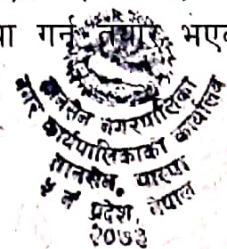 गर्न तयार
तानसेन नगरपालिका
नगर कार्यपालिकाको कार्यालय
तानसेन, पाल्पा
५ नं प्रदेश, नेपाल
२०७३